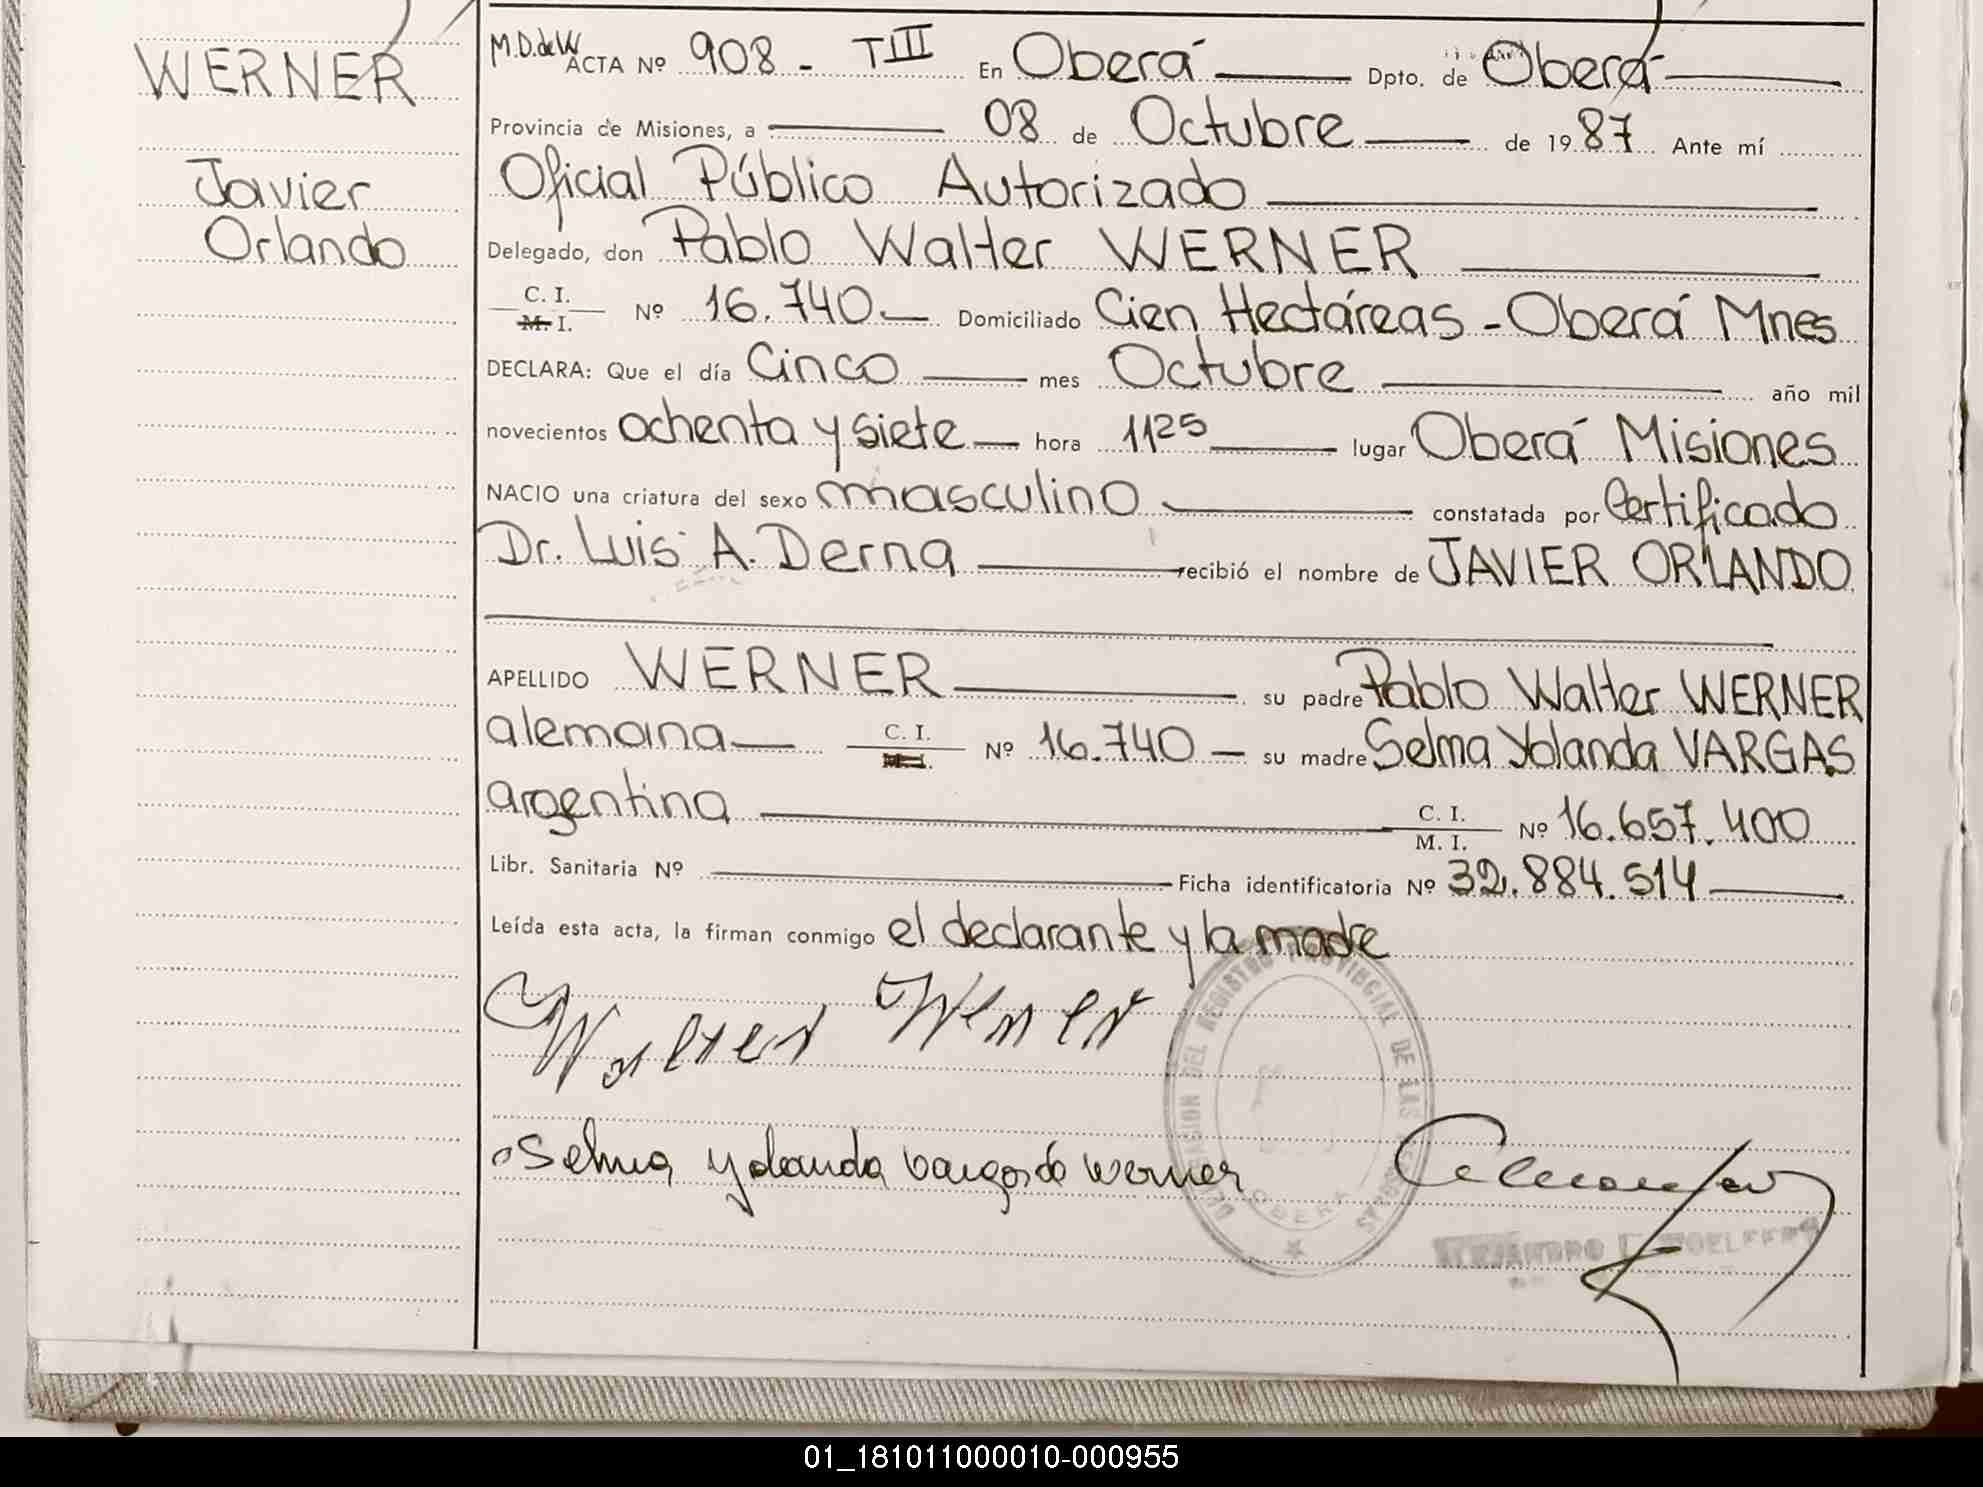 WERNER
Javier
Orlando
M.D. de W ACTA Nº 908 - TIII En Oberá Dpto. de Oberá
Provincia de Misiones, a 08 de Octubre de 1987 Ante mí
Oficial Público Autorizado
Delegado, don Pablo Walter WERNER
C. I. M. I. Nº 16.740 Domiciliado Cien Hectáreas - Oberá Mnes
DECLARA: Que el día Cinco mes Octubre año mil
novecientos ochenta y siete hora 1125 lugar Oberá Misiones
NACIO una criatura del sexo masculino constatada por Certificado
Dr. Luis A. Derna recibió el nombre de JAVIER ORLANDO
APELLIDO WERNER su padre Pablo Walter WERNER
alemana C. I. Nº 16.740 su madre Selma Yolanda VARGAS
argentina C. I. M. I. Nº 16.657.400
Libr. Sanitaria Nº Ficha identificatoria Nº 32.884.514
Leída esta acta, la firman conmigo el declarante y la madre
Walter Werner
Selma Yolanda Vargas de Werner
DELEGACION DEL REGISTRO PROVINCIAL DE LAS PERSONAS
OBERA
ALEJANDRO
01_181011000010-000955